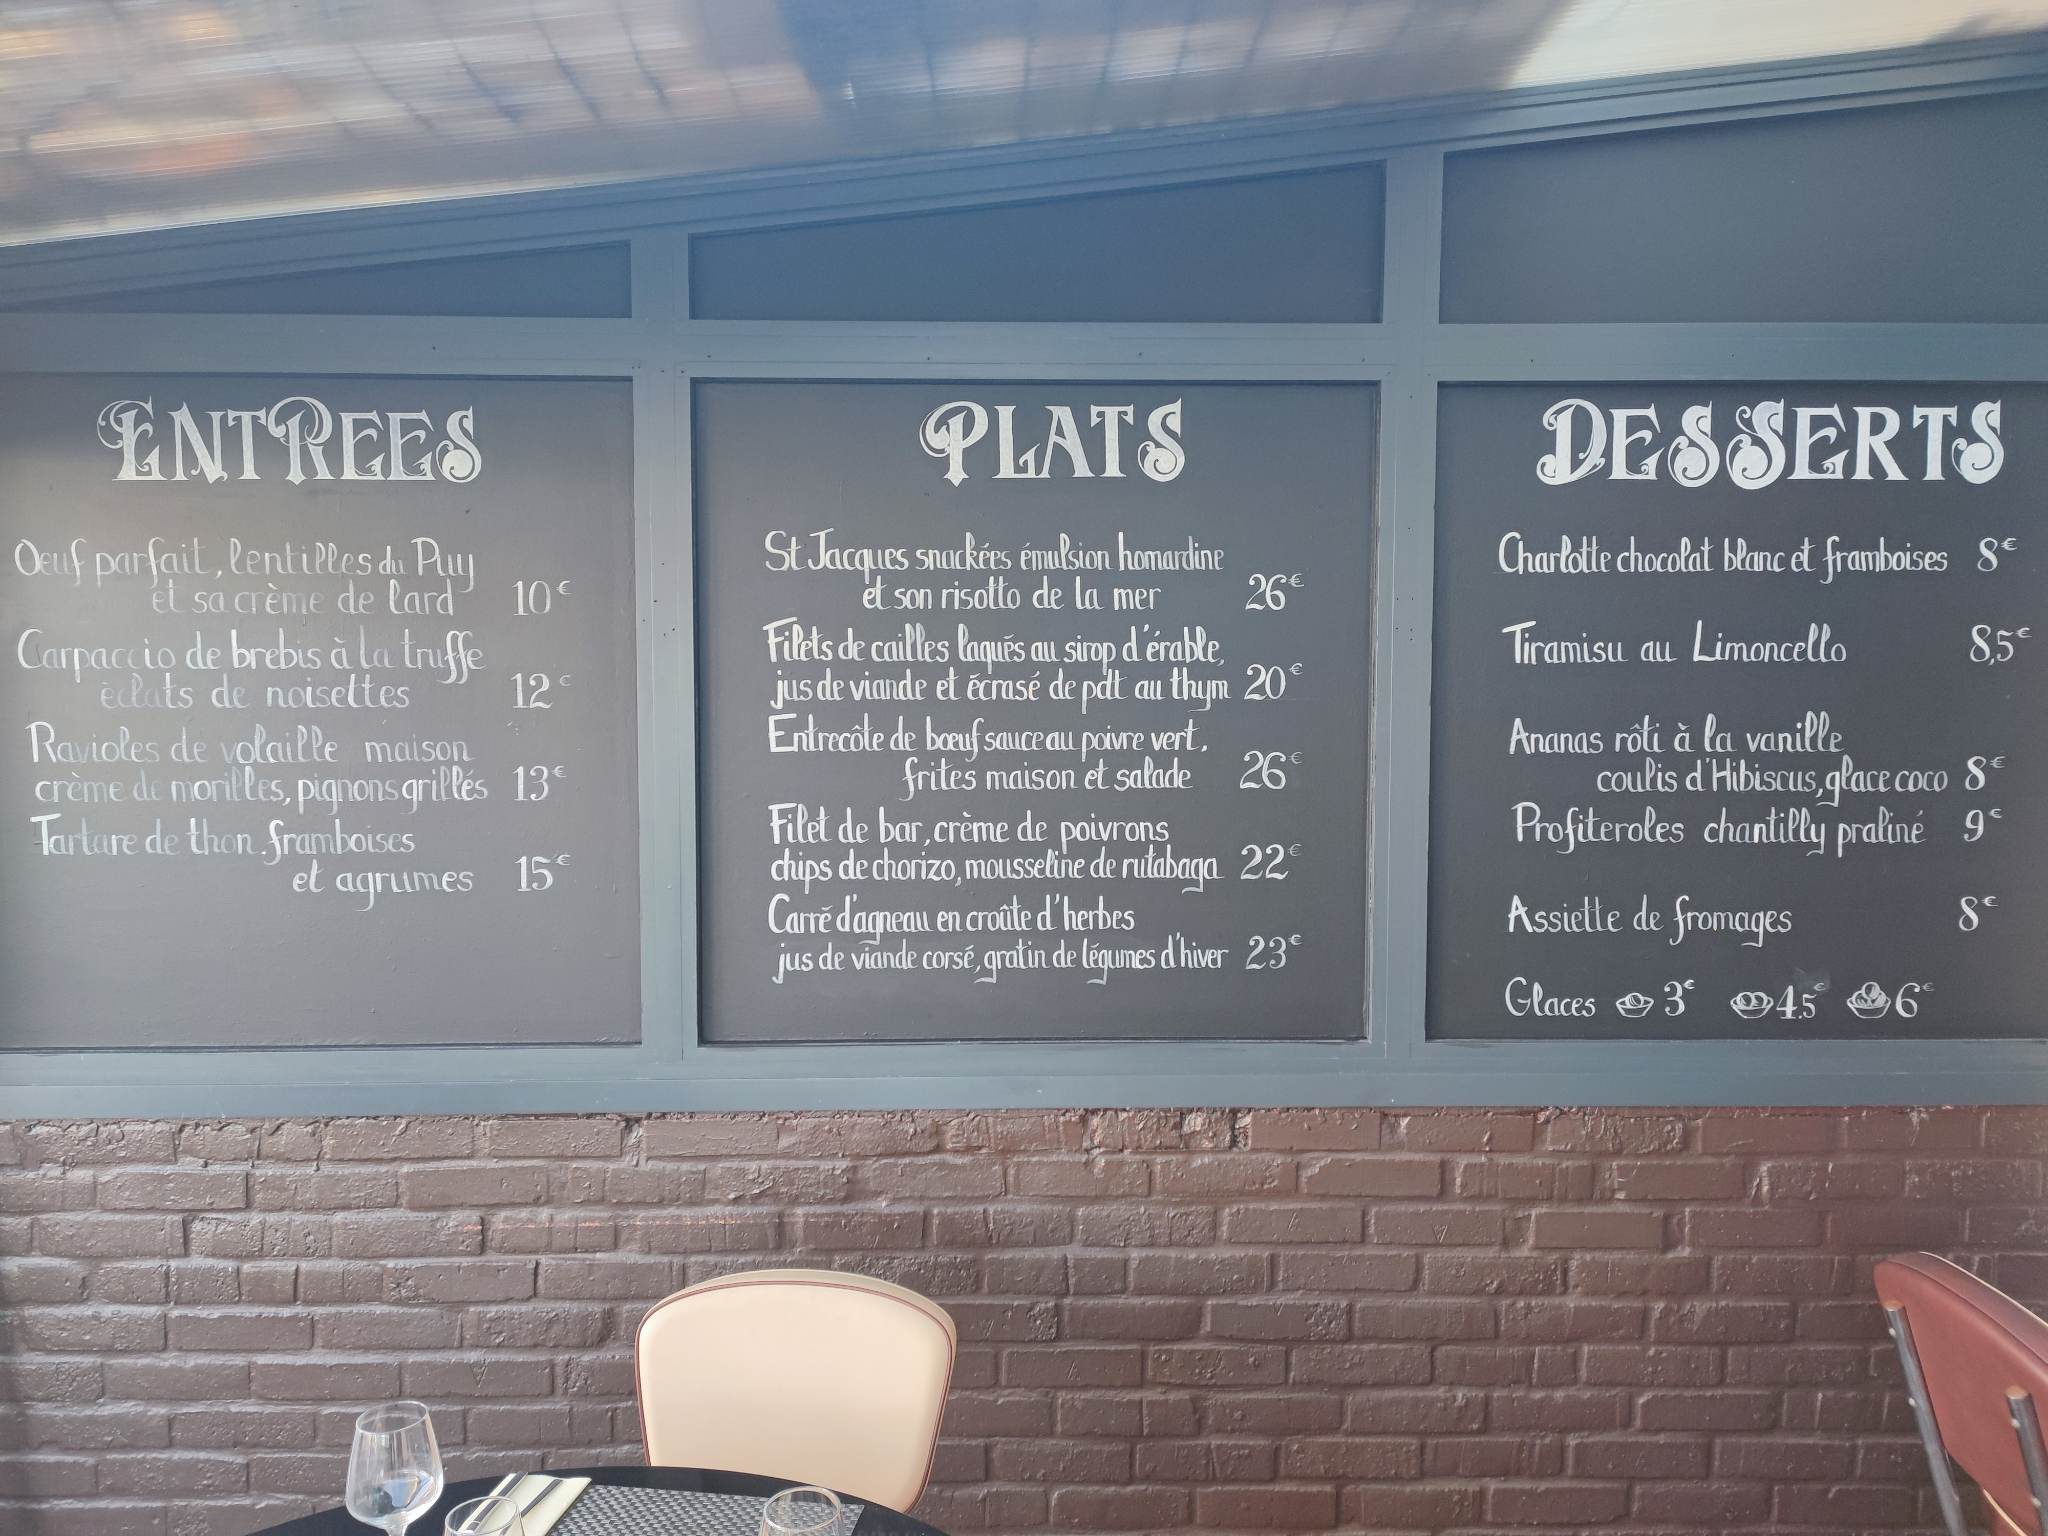 ENTREES
Oeuf parfait, lentilles du Puy
et sa crème de lard 10€
Carpaccio de brebis à la truffe
éclats de noisettes 12€
Ravioles de volaille maison
crème de morilles, pignons grillés 13€
Tartare de thon, framboises
et agrumes 15€
PLATS
St Jacques snackées émulsion homardine
et son risotto de la mer 26€
Filets de cailles laqués au sirop d'érable,
jus de viande et écrasé de pdt au thym 20€
Entrecôte de bœuf sauce au poivre vert,
frites maison et salade 26€
Filet de bar, crème de poivrons
chips de chorizo, mousseline de rutabaga 22€
Carré d'agneau en croûte d'herbes
jus de viande corsé, gratin de légumes d'hiver 23€
DESSERTS
Charlotte chocolat blanc et framboises 8€
Tiramisu au Limoncello 8,5€
Ananas rôti à la vanille
coulis d'Hibiscus, glace coco 8€
Profiteroles chantilly praliné 9€
Assiette de fromages 8€
Glaces 3€ 4.5€ 6€